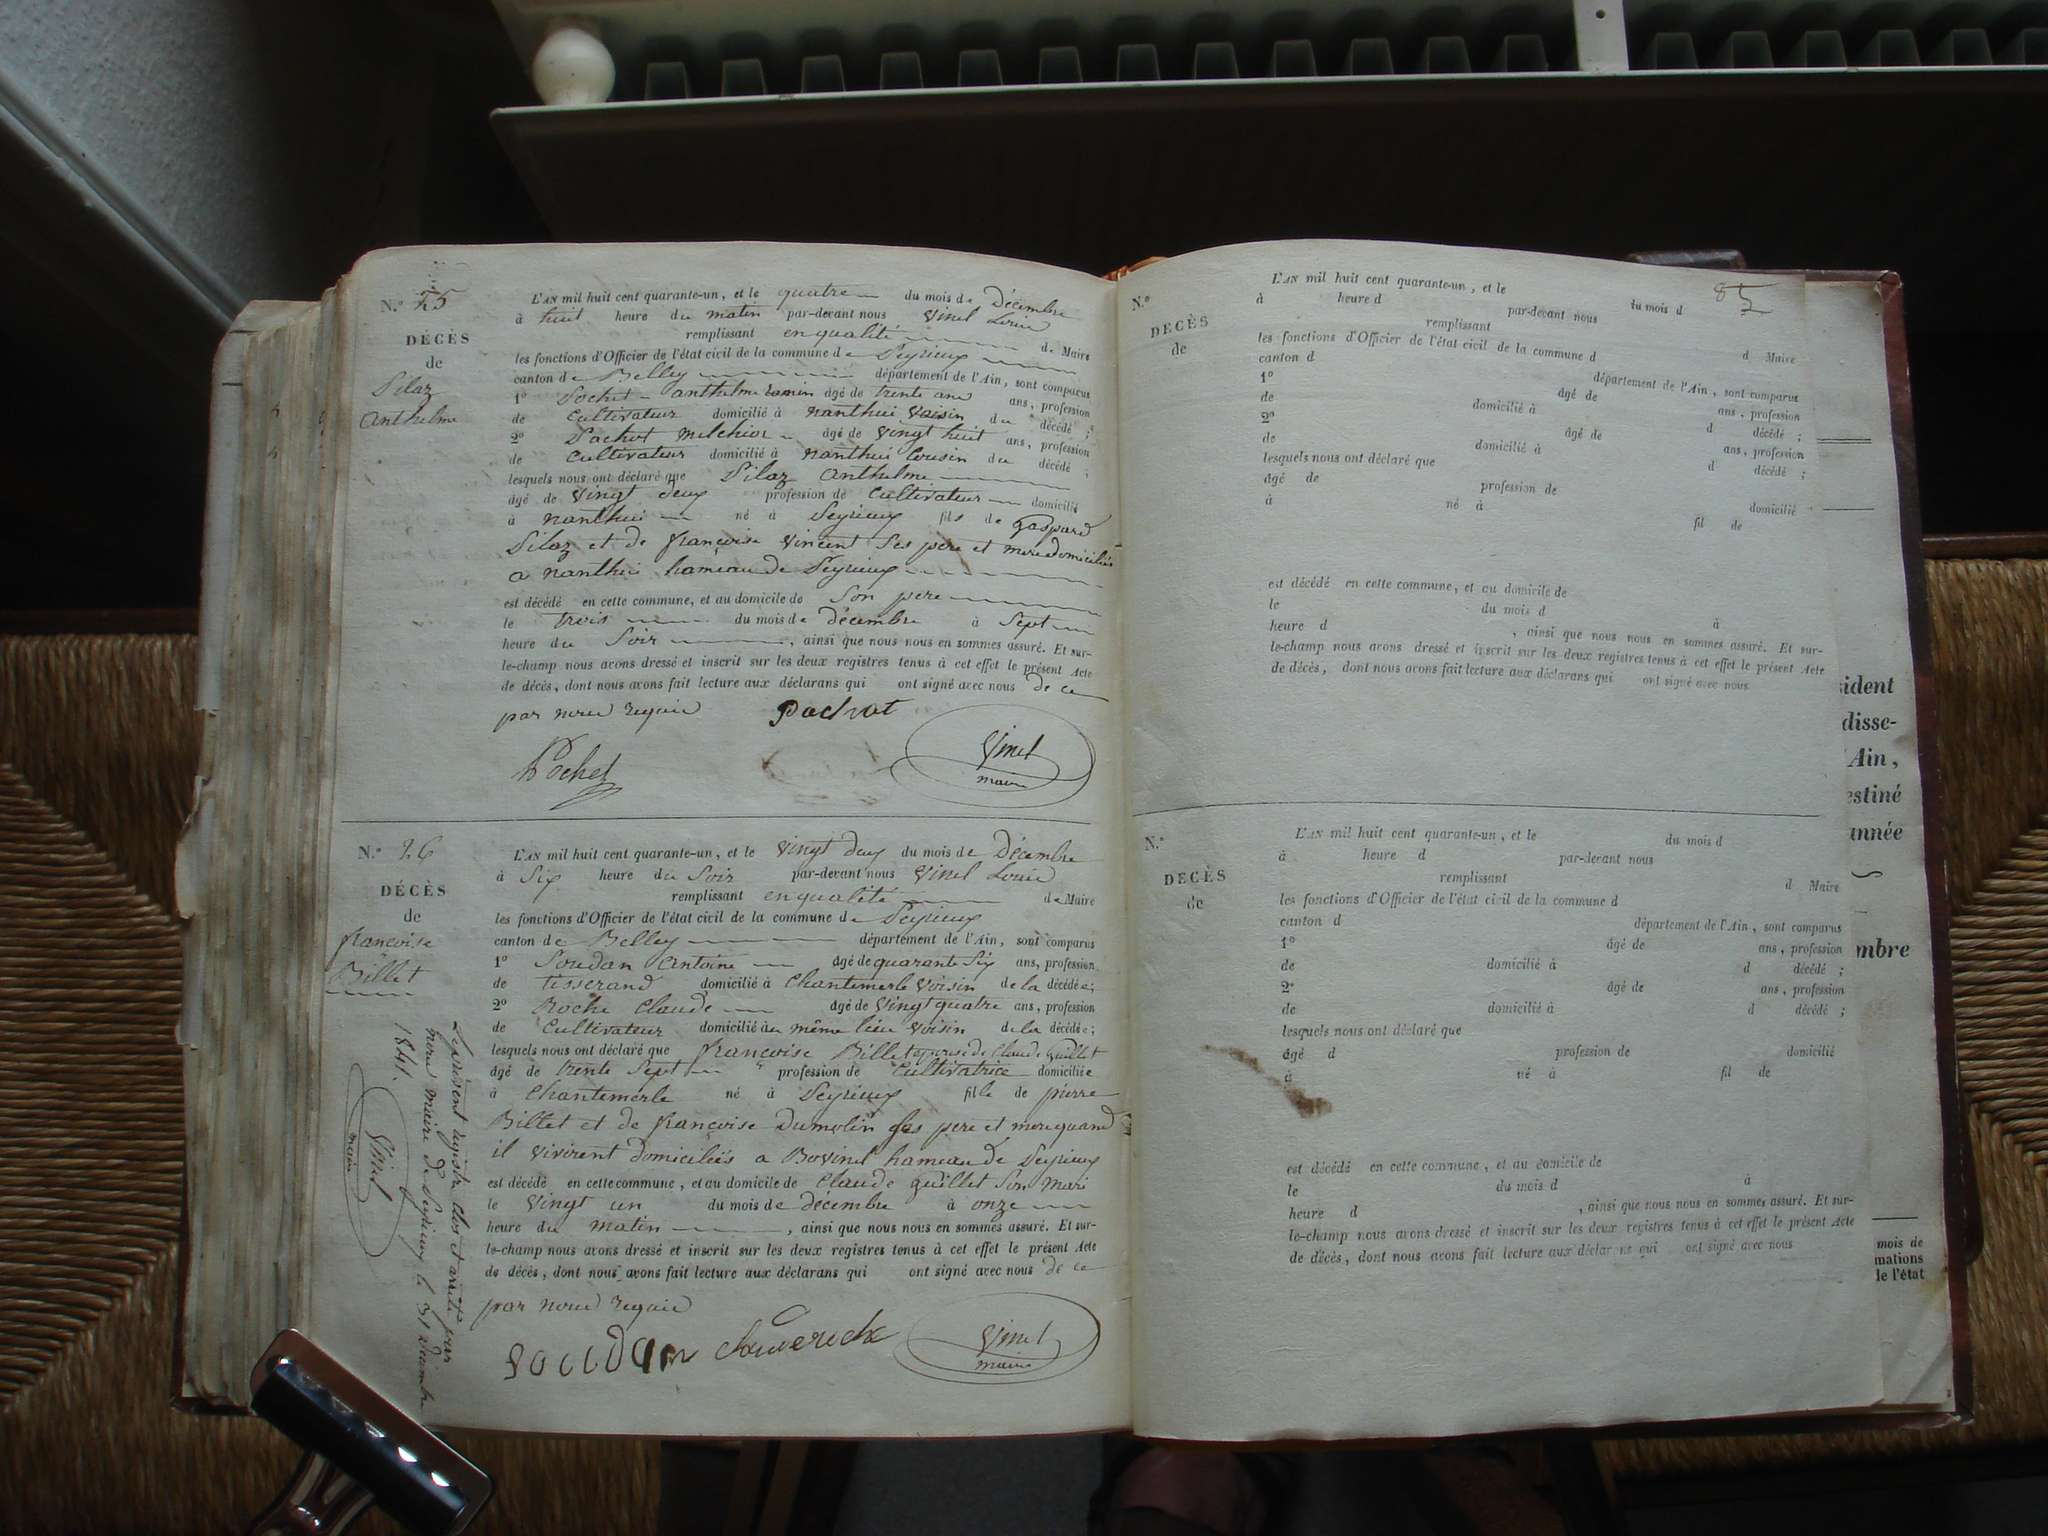 N.º 25
DÉCÈS
de
Pilaz
Anthelme
L'AN mil huit cent quarante-un, et le quatre du mois de Décembre
à huit heure du matin par-devant nous Vinel Louis
remplissant en qualité de Maire
les fonctions d'Officier de l'état civil de la commune de Peyrieux
canton de Belley département de l'Ain, sont comparus
1º Pochet anthelme âgé de trente ans ans, profession
de Cultivateur domicilié à nanthui Voisin du décédé ;
2º Pachot melchior âgé de Vingt huit ans, profession
de Cultivateur domicilié à nanthui Cousin du décédé ;
lesquels nous ont déclaré que Pilaz Anthelme
âgé de Vingt deux profession de Cultivateur domicilié
à nanthui né à Peyrieux fils de gaspard
Pilaz et de françoise Vincent Ses pere et mere domiciliés
a nanthui hameau de Peyrieux
est décédé en cette commune, et au domicile de Son pere
le trois du mois de décembre à Sept
heure du Soir , ainsi que nous nous en sommes assuré. Et sur-
le-champ nous avons dressé et inscrit sur les deux registres tenus à cet effet le présent Acte
de décès, dont nous avons fait lecture aux déclarans qui ont signé avec nous de ce
par nous requis Pachot
Pochet
Vinel
maire
N.º 26
DÉCÈS
de
françoise
Billet
L'AN mil huit cent quarante-un, et le Vingt deux du mois de Décembre
à Six heure du Soir par-devant nous Vinel Louis
remplissant en qualité de Maire
les fonctions d'Officier de l'état civil de la commune de Peyrieux
canton de Belley département de l'Ain, sont comparus
1º Soudan Antoine âgé de quarante Six ans, profession
de tisserand domicilié à Chantemerle Voisin de la décédée;
2º Roche Claude âgé de Vingt quatre ans, profession
de Cultivateur domicilié au même lieu Voisin de la décédée;
lesquels nous ont déclaré que françoise Billet epouse de Claude Guillet
âgé de trente Sept profession de Cultivatrice domiciliée
à Chantemerle né à Peyrieux fille de pierre
Billet et de françoise Dumolin ses pere et mere quand
il vivirent domiciliés a Bovinel hameau de Peyrieux
est décédé en cette commune, et au domicile de Claude guillet Son Mari
le Vingt un du mois de décembre à onze
heure du matin , ainsi que nous nous en sommes assuré. Et sur-
le-champ nous avons dressé et inscrit sur les deux registres tenus à cet effet le présent Acte
de décès, dont nous avons fait lecture aux déclarans qui ont signé avec nous de ce
par nous requis
Souudan
Vinel
maire
Le présent registre clos et arrêté par
nous maire de Peyrieux le 31 décembre
1841.
Vinel
maire
85
N.º
DÉCÈS
de
L'AN mil huit cent quarante-un, et le du mois d
à heure d par-devant nous
remplissant d Maire
les fonctions d'Officier de l'état civil de la commune d
canton d département de l'Ain, sont comparus
1º âgé de ans, profession
de domicilié à d décédé ;
2º âgé de ans, profession
de domicilié à d décédé ;
lesquels nous ont déclaré que
âgé de profession de domicilié
à né à fil de
est décédé en cette commune, et au domicile de
le du mois d à
heure d , ainsi que nous nous en sommes assuré. Et sur-
le-champ nous avons dressé et inscrit sur les deux registres tenus à cet effet le présent Acte
de décès, dont nous avons fait lecture aux déclarans qui ont signé avec nous
N.º
DÉCÈS
de
L'AN mil huit cent quarante-un, et le du mois d
à heure d par-devant nous
remplissant d Maire
les fonctions d'Officier de l'état civil de la commune d
canton d département de l'Ain, sont comparus
1º âgé de ans, profession
de domicilié à d décédé ;
2º âgé de ans, profession
de domicilié à d décédé ;
lesquels nous ont déclaré que
âgé d profession de domicilié
à né à fil de
est décédé en cette commune, et au domicile de
le du mois d à
heure d , ainsi que nous nous en sommes assuré. Et sur-
le-champ nous avons dressé et inscrit sur les deux registres tenus à cet effet le présent Acte
de décès, dont nous avons fait lecture aux déclar ns qui ont signé avec nous
sident
disse-
Ain,
estiné
année
mbre
mois de
mations
le l'état